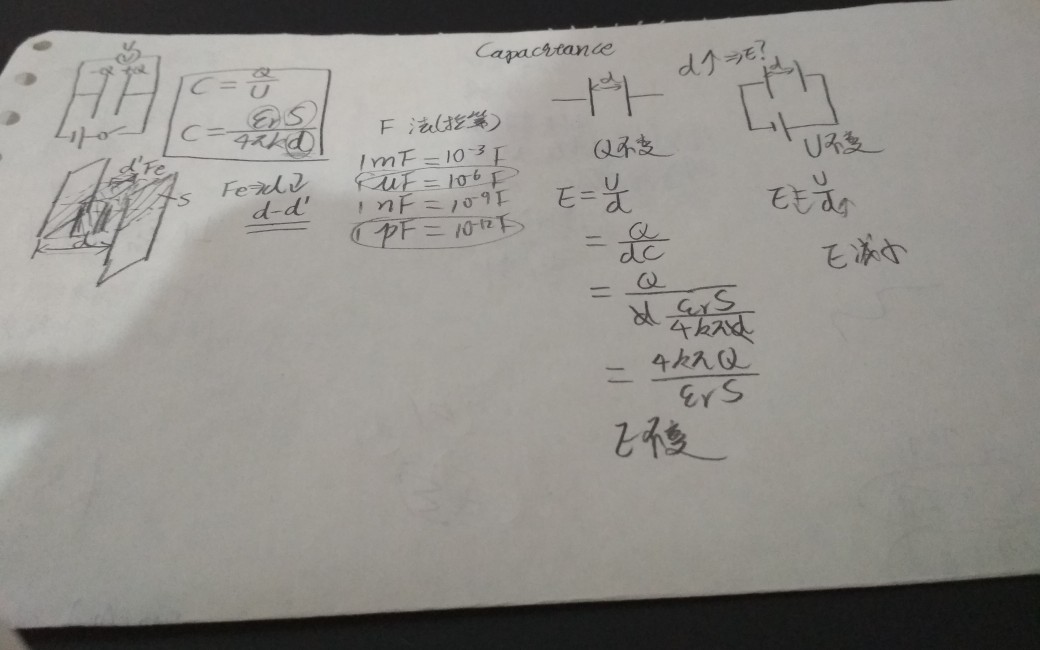 Capacitance
U
-Q +Q
C = Q/U
C = εrS/4πk(d)
d' Fe
S
d
Fe→d↓
d-d'
F 法(拉第)
1mF = 10⁻³F
1μF = 10⁻⁶F
1nF = 10⁻⁹F
1pF = 10⁻¹²F
d↑⇒E?
d
Q不变
E = U/d
= Q/dC
= Q/(d εrS/4kπd)
= 4kπQ/εrS
E不变
d
U不变
E↓=U/d↑
E减小